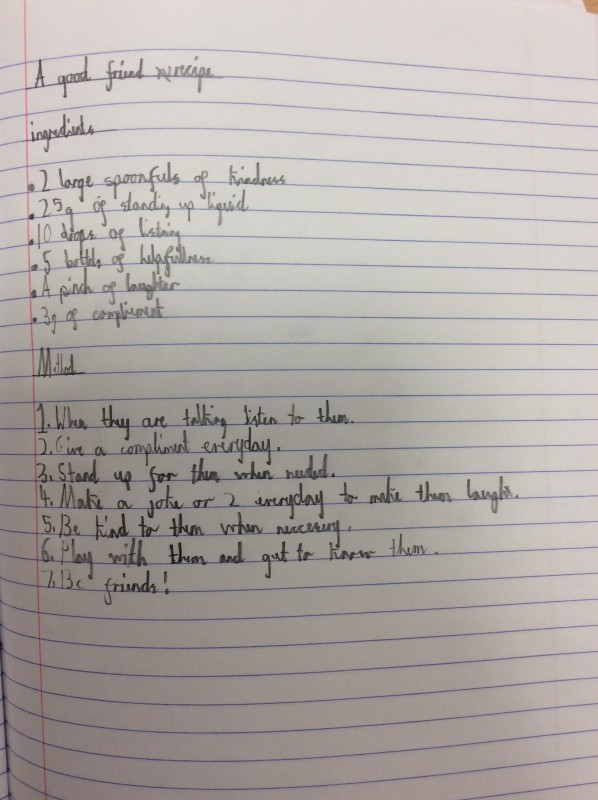 A good friend recipe
ingredients
• 2 large spoonfuls of kindness
• 25g of standing up liquid
• 10 drops of listning
• 5 bottels of helpfullness
• A pinch of laughter
• 3g of compliment
Method
1. When they are talking listen to them.
2. Give a compliment everyday.
3. Stand up for them when needed.
4. Make a joke or 2 everyday to make them laugh.
5. Be kind to them when neccesery.
6. Play with them and get to know them.
7. Be friends!